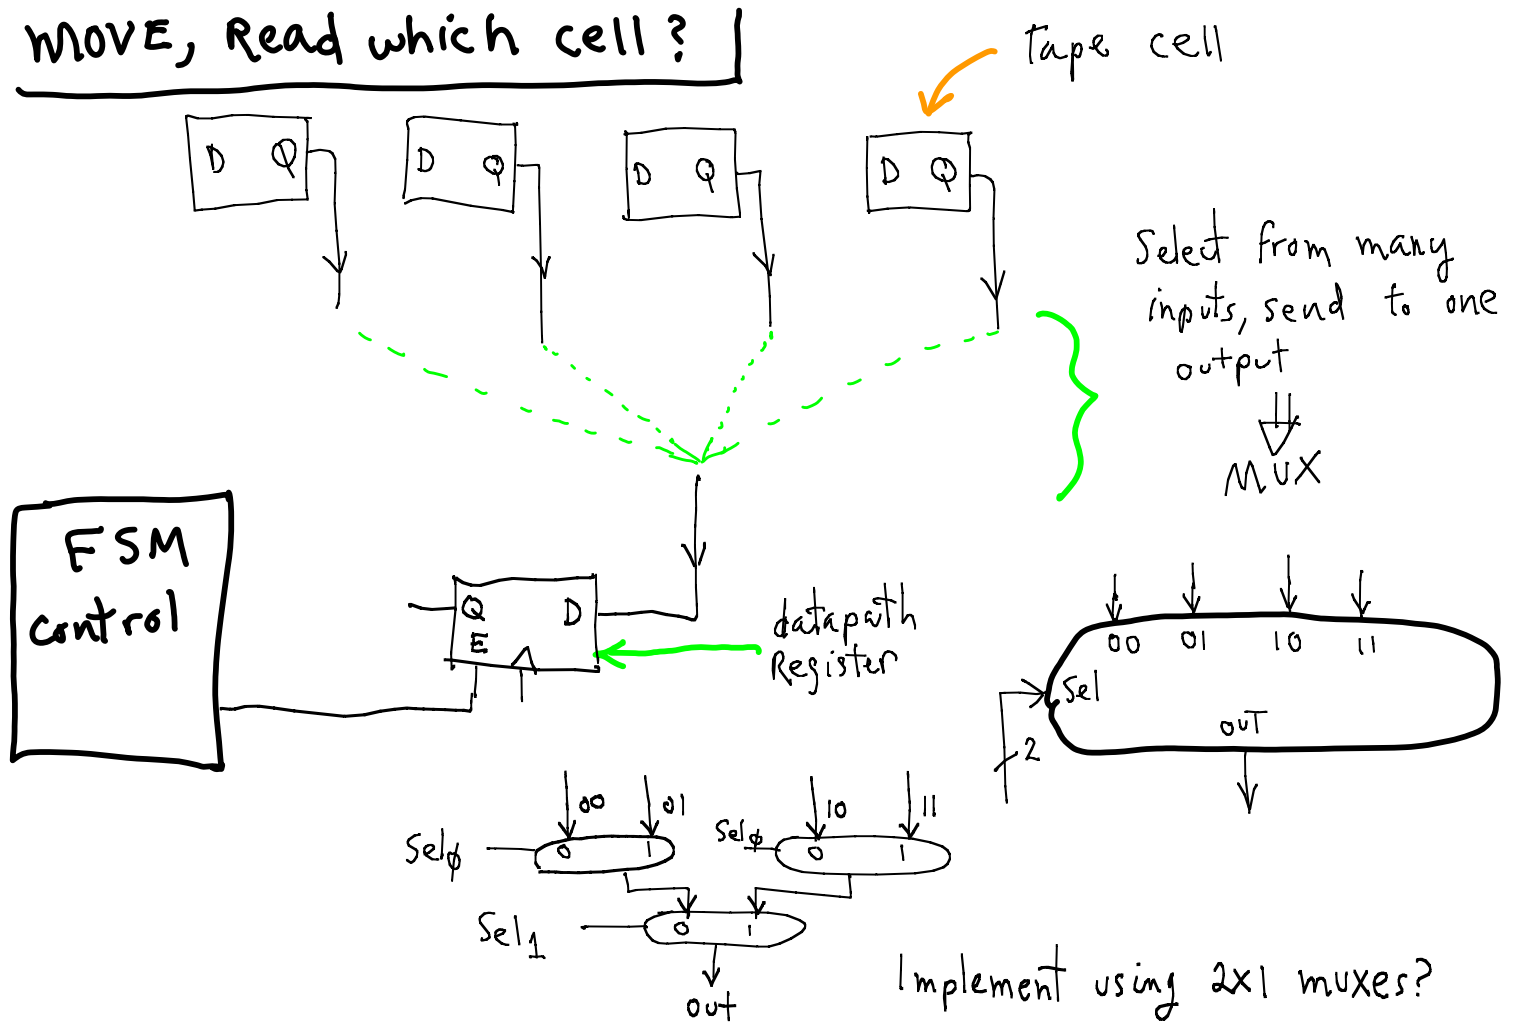 MOVE, Read which cell?
tape cell
D Q
D Q
D Q
D Q
Select from many
inputs, send to one
output
MUX
FSM
control
Q D
E
datapath
Register
00 01 10 11
Sel
OUT
2
00 01 10 11
Selϕ
0 1
Selϕ
0 1
Sel1
0 1
out
Implement using 2x1 muxes?